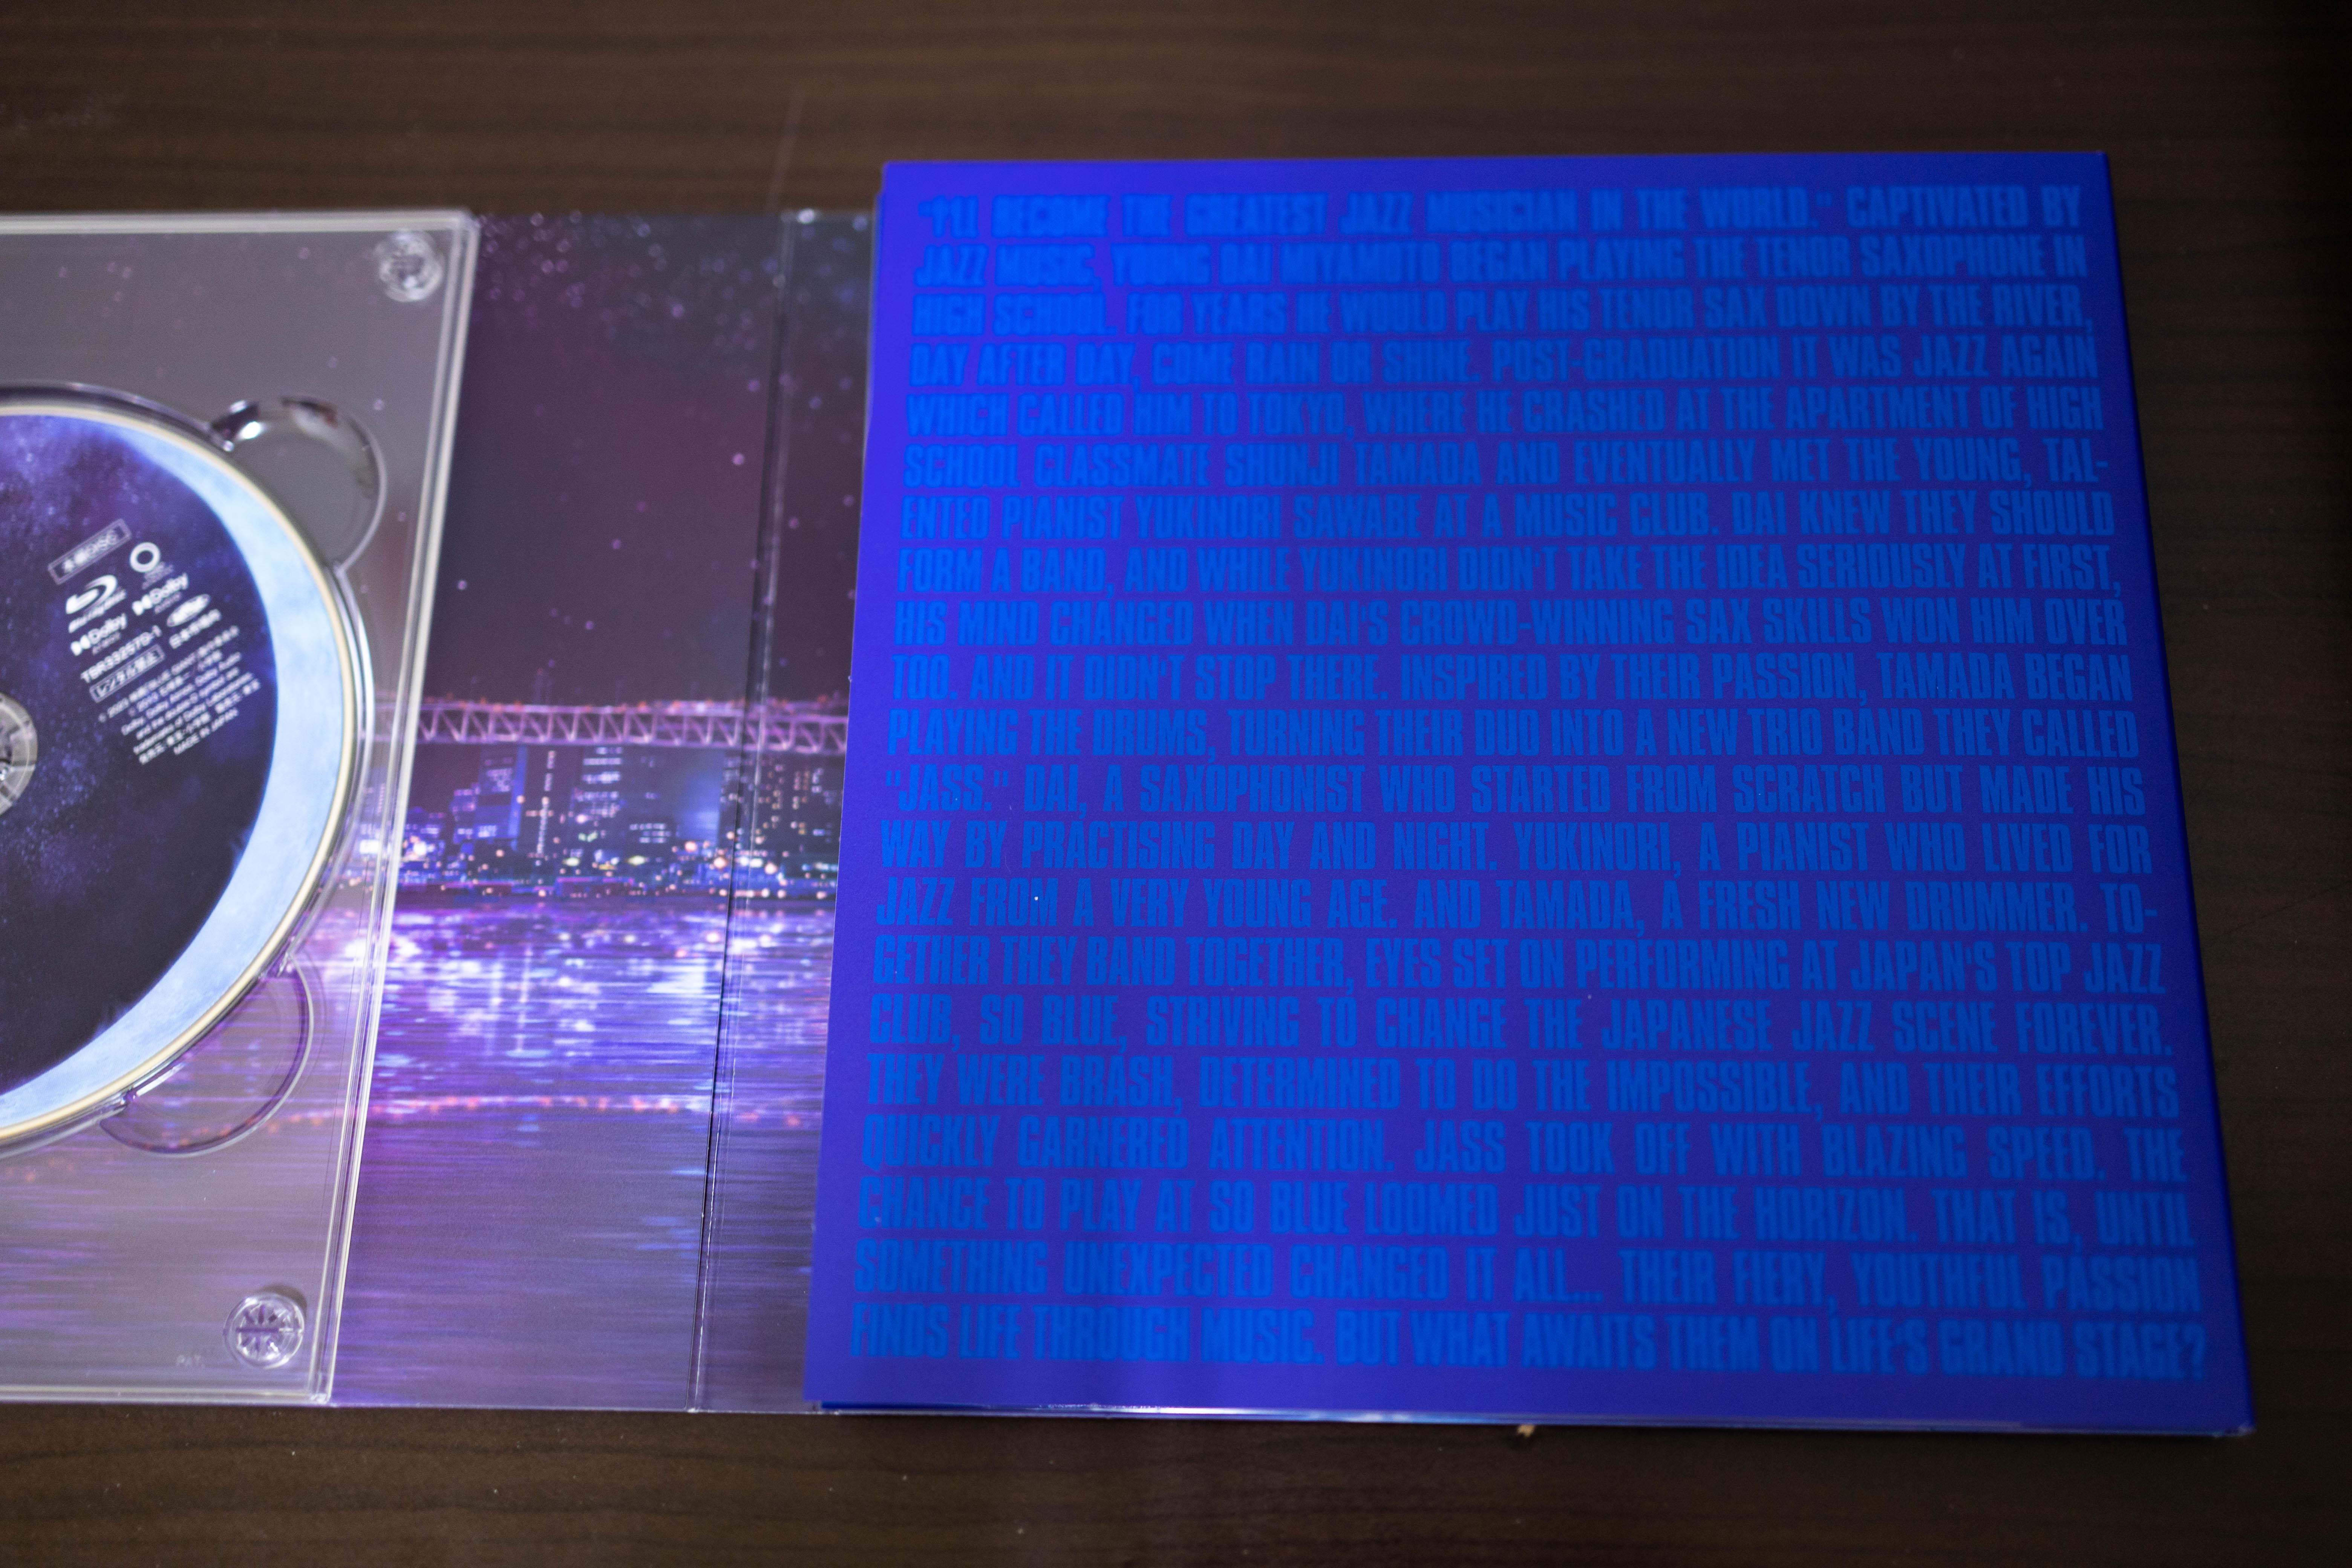 本編DISC
Blu-ray Disc
Dolby
Dolby
TBR33257D-1
日本市場向
レンタル禁止
MADE IN JAPAN
PAT.
"I'LL BECOME THE GREATEST JAZZ MUSICIAN IN THE WORLD." CAPTIVATED BY
JAZZ MUSIC, YOUNG DAI MIYAMOTO BEGAN PLAYING THE TENOR SAXOPHONE IN
HIGH SCHOOL. FOR YEARS HE WOULD PLAY HIS TENOR SAX DOWN BY THE RIVER,
DAY AFTER DAY, COME RAIN OR SHINE. POST-GRADUATION IT WAS JAZZ AGAIN
WHICH CALLED HIM TO TOKYO, WHERE HE CRASHED AT THE APARTMENT OF HIGH
SCHOOL CLASSMATE SHUNJI TAMADA AND EVENTUALLY MET THE YOUNG, TAL-
ENTED PIANIST YUKINORI SAWABE AT A MUSIC CLUB. DAI KNEW THEY SHOULD
FORM A BAND, AND WHILE YUKINORI DIDN'T TAKE THE IDEA SERIOUSLY AT FIRST,
HIS MIND CHANGED WHEN DAI'S CROWD-WINNING SAX SKILLS WON HIM OVER
TOO. AND IT DIDN'T STOP THERE. INSPIRED BY THEIR PASSION, TAMADA BEGAN
PLAYING THE DRUMS, TURNING THEIR DUO INTO A NEW TRIO BAND THEY CALLED
"JASS." DAI, A SAXOPHONIST WHO STARTED FROM SCRATCH BUT MADE HIS
WAY BY PRACTISING DAY AND NIGHT. YUKINORI, A PIANIST WHO LIVED FOR
JAZZ FROM A VERY YOUNG AGE. AND TAMADA, A FRESH NEW DRUMMER. TO-
GETHER THEY BAND TOGETHER, EYES SET ON PERFORMING AT JAPAN'S TOP JAZZ
CLUB, SO BLUE, STRIVING TO CHANGE THE JAPANESE JAZZ SCENE FOREVER.
THEY WERE BRASH, DETERMINED TO DO THE IMPOSSIBLE, AND THEIR EFFORTS
QUICKLY GARNERED ATTENTION. JASS TOOK OFF WITH BLAZING SPEED. THE
CHANCE TO PLAY AT SO BLUE LOOMED JUST ON THE HORIZON. THAT IS, UNTIL
SOMETHING UNEXPECTED CHANGED IT ALL... THEIR FIERY, YOUTHFUL PASSION
FINDS LIFE THROUGH MUSIC. BUT WHAT AWAITS THEM ON LIFE'S GRAND STAGE?